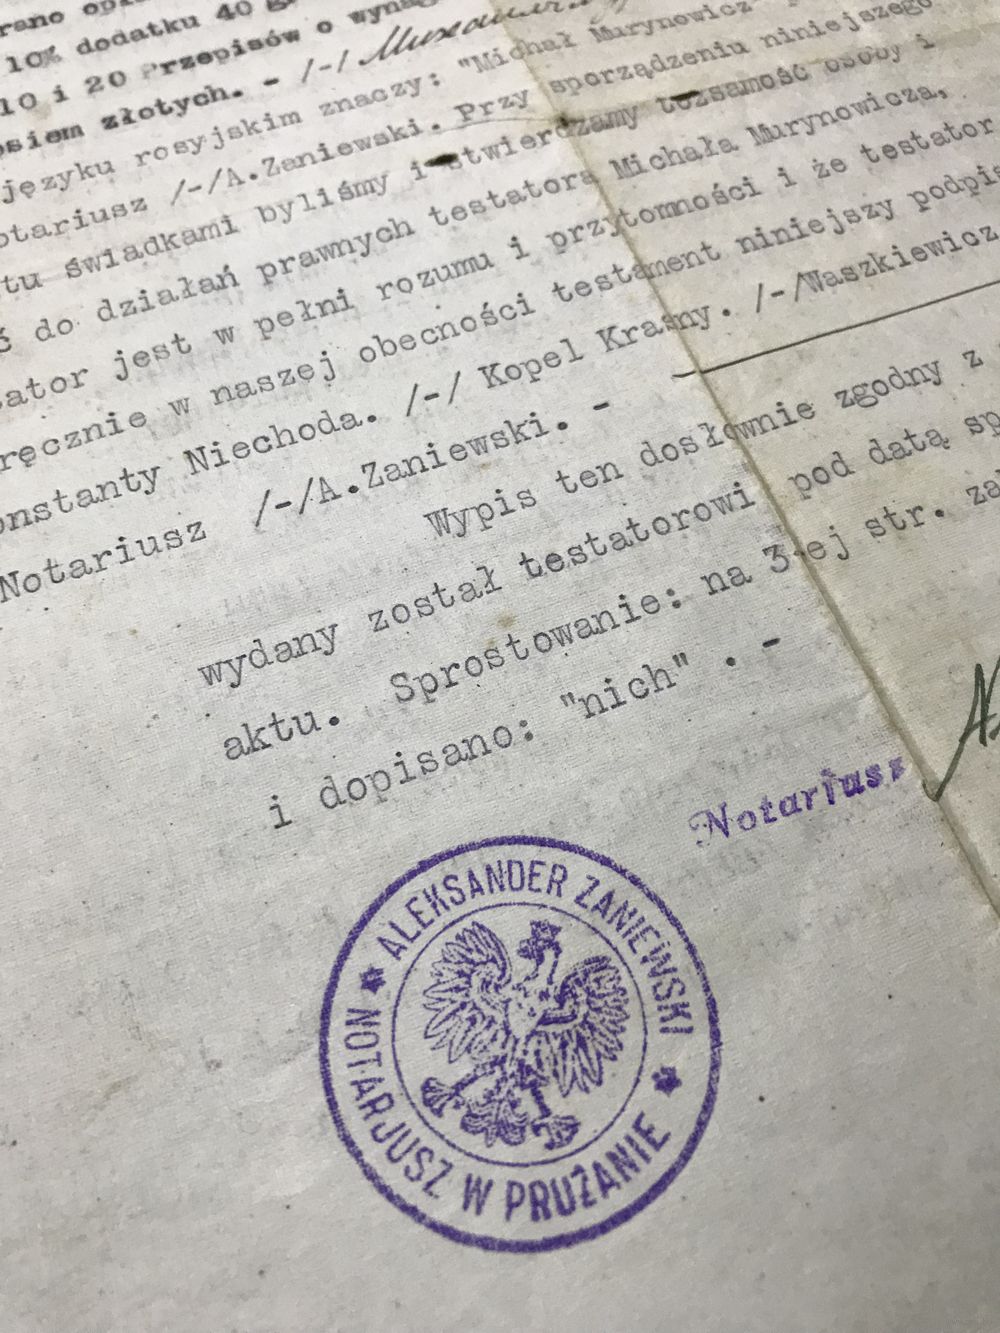 10% dodatku 40
10 i 20 Przepisów o
osiem złotych. - /-/
języku rosyjskim znaczy: "Michał Murynowicz-
Notariusz /-/A.Zaniewski. Przy sporządzeniu niniejszego
tu świadkami byliśmy i stwierdzamy tożsamość osoby i
do działań prawnych testatora Michała Murynowicza,
jest w pełni rozumu i przytomności i że testator
ręcznie w naszej obecności testament niniejszy
Konstanty Niechoda. /-/ Kopel Krasny. /-/Waszkiewicz
Notariusz /-/A.Zaniewski. -
Wypis ten dosłownie zgodny z
wydany został testatorowi pod datą
aktu. Sprostowanie: na 3-ej str.
i dopisano: "nich" . -
Notariusz
ALEKSANDER ZANIEWSKI
NOTARJUSZ W PRUŻANIE